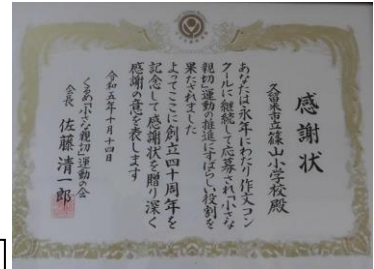 感謝状
久留米市立篠山小学校殿
あなたは永年にわたり作文コン
クールに継続して応募され「小さな
親切」運動の推進にすばらしい役割を
果たされました
よってここに創立四十周年を
記念して感謝状を贈り深く
感謝の意を表します
令和五年十月十四日
くるめ「小さな親切」運動の会
会長 佐藤清一郎